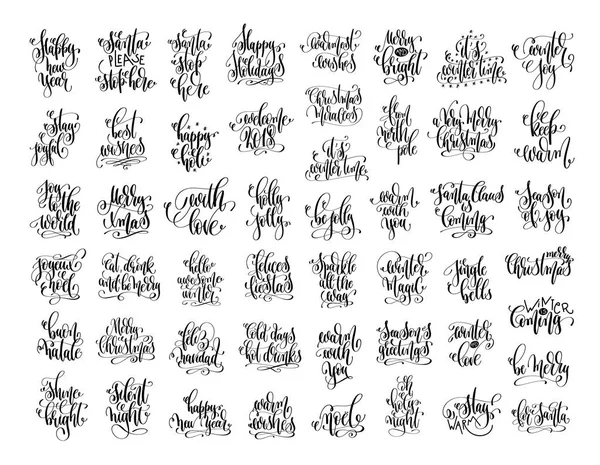 Happy
new
year
Santa
PLEASE
stop here
Santa
stop
here
Happy
Holidays
warmest
wishes
Merry
AND
bright
it's
winter time
winter
joy
Stay
joyful
best
wishes
happy
holi
welcome
2018
Christmas
Miracles
it's
winter time
from
north
pole
Very Merry
Christmas
keep
warm
Joy
to the
world
Merry
Xmas
with
love
holly
jolly
be jolly
warm
with
you
Santa Claus
is
coming
Season
of joy
Joyeux
noel
Eat, drink
and be merry
hello
awesome
winter
felices
fiestas
Sparkle
all the
way
winter
magic
jingle
bells
merry
Christmas
buon
natale
Merry
Christmas
feliz
navidad
Cold days
hot drinks
warm
with
you
Season's
greetings
winter
love
WINTER
IS
Coming
be merry
Shine
bright
Silent
night
happy
new year
warm
wishes
noel
oh
holy
night
stay
WARM
for Santa